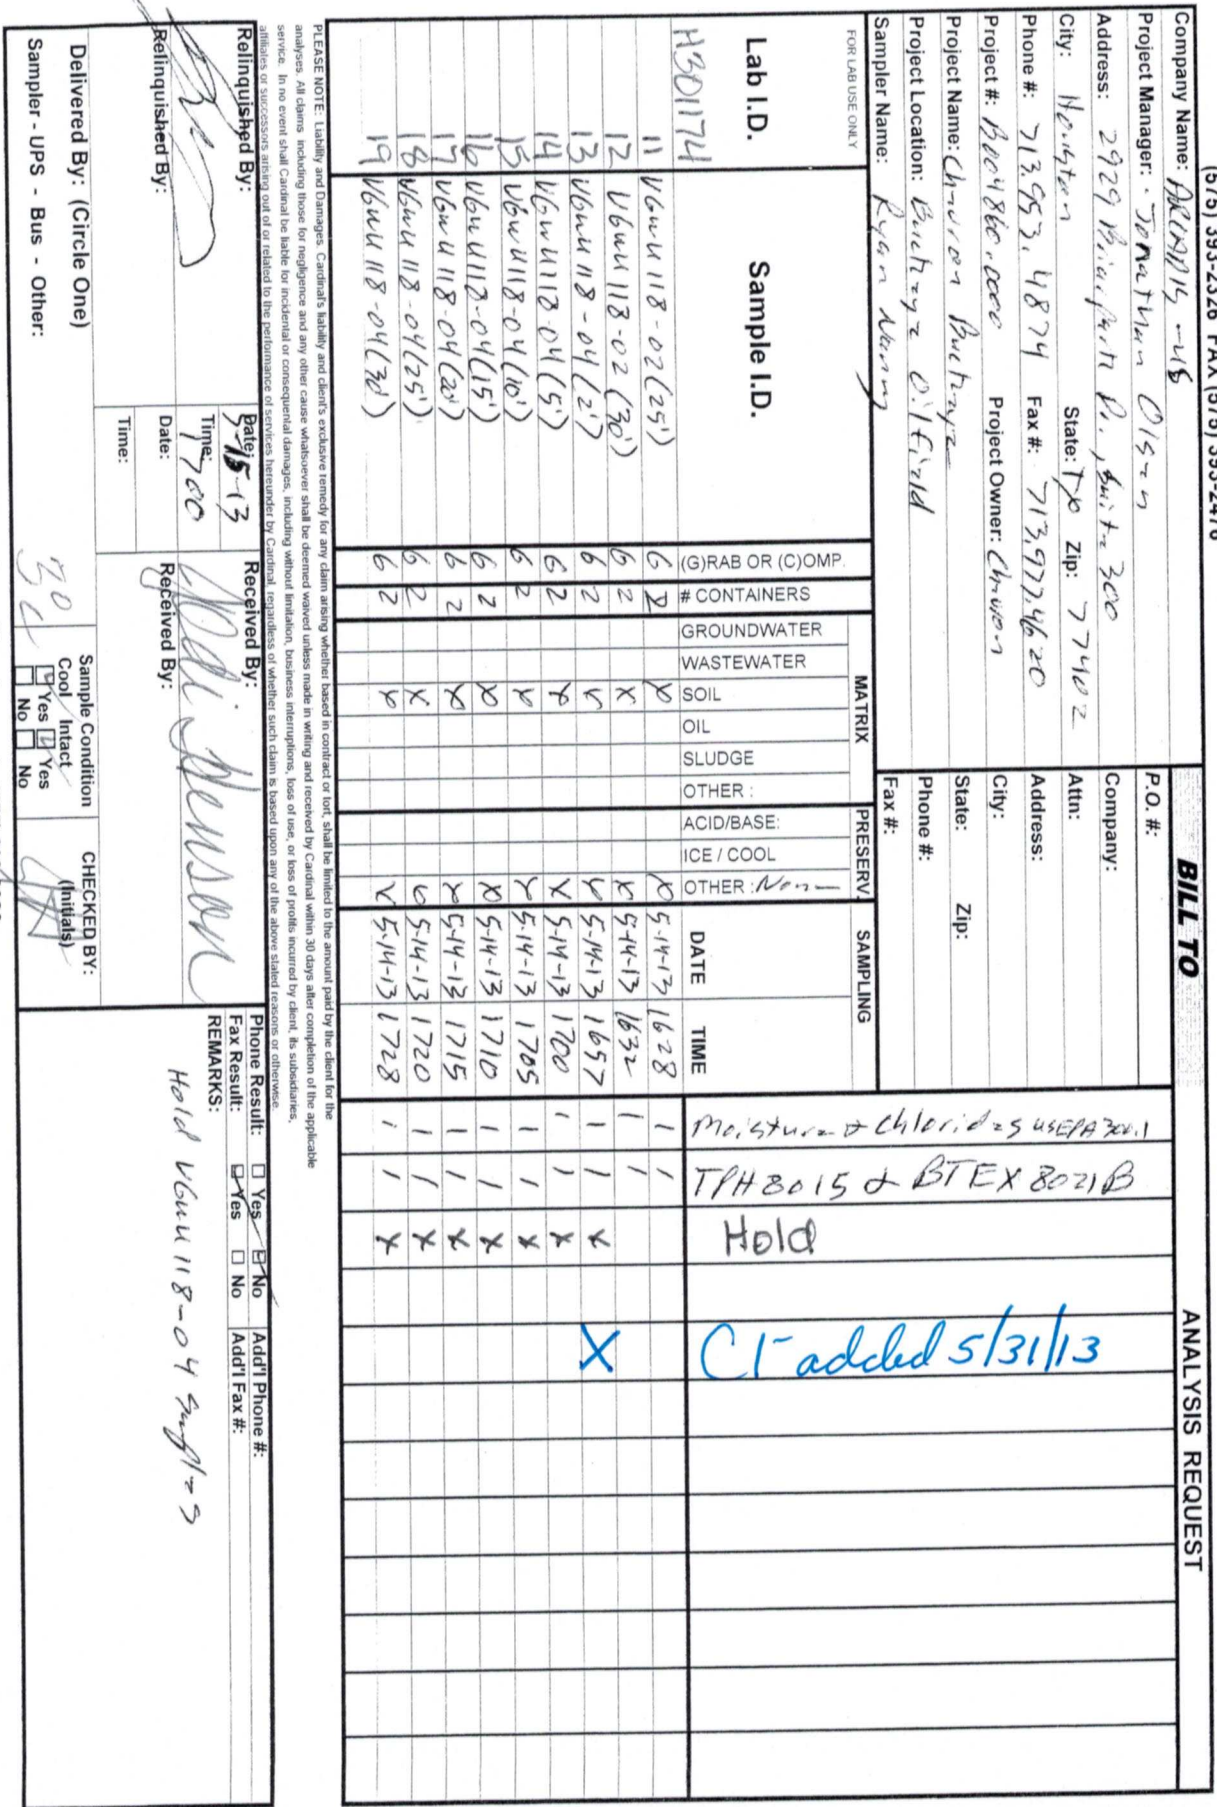 (575) 393-2326 FAX (575) 393-2476
Company Name: ARCADIS -US
Project Manager: Jonathan Olsen
Address: 2929 Briarpark Dr., Suite 300
City: Houston State: Tx Zip: 77402
Phone #: 713.953.4874 Fax #: 713.977.4620
Project #: B004860.0000 Project Owner: Chevron
Project Name: Chevron Buckeye
Project Location: Buckeye Oilfield
Sampler Name: Ryan
BILL TO
P.O. #:
Company:
Attn:
Address:
City:
State: Zip:
Phone #:
Fax #:
ANALYSIS REQUEST
Moisture & Chlorides USEPA 300.1
TPH 8015 & BTEX 8021B
Hold
Cl- added 5/31/13
FOR LAB USE ONLY
Lab I.D. Sample I.D. (G)RAB OR (C)OMP. # CONTAINERS MATRIX PRESERV. SAMPLING
GROUNDWATER WASTEWATER SOIL OIL SLUDGE OTHER : ACID/BASE: ICE / COOL OTHER : None DATE TIME
H301174
11 VGWU 118-02 (25') G 2 X X 5-14-13 1628 1 1
12 VGWU 118-02 (30') G 2 X X 5-14-13 1632 1 1
13 VGWU 118-04 (2') G 2 X X 5-14-13 1657 1 1 X X
14 VGWU 118-04 (5') G 2 X X 5-14-13 1700 1 1 X
15 VGWU 118-04 (10') G 2 X X 5-14-13 1705 1 1 X
16 VGWU 118-04 (15') G 2 X X 5-14-13 1710 1 1 X
17 VGWU 118-04 (20') G 2 X X 5-14-13 1715 1 1 X
18 VGWU 118-04 (25') G 2 X X 5-14-13 1720 1 1 X
19 VGWU 118-04 (30') G 2 X X 5-14-13 1728 1 1 X
PLEASE NOTE: Liability and Damages. Cardinal's liability and client's exclusive remedy for any claim arising whether based in contract or tort, shall be limited to the amount paid by the client for the
analyses. All claims including those for negligence and any other cause whatsoever shall be deemed waived unless made in writing and received by Cardinal within 30 days after completion of the applicable
service. In no event shall Cardinal be liable for incidental or consequental damages, including without limitation, business interruptions, loss of use, or loss of profits incurred by client, its subsidiaries,
affiliates or successors arising out of or related to the performance of services hereunder by Cardinal, regardless of whether such claim is based upon any of the above stated reasons or otherwise.
Relinquished By: Date: 5-15-13 Time: 1700 Received By: Jodi Henson
Relinquished By: Date: Time: Received By:
Phone Result: ☐ Yes ☑ No Add'l Phone #:
Fax Result: ☑ Yes ☐ No Add'l Fax #:
REMARKS:
Hold VGWU 118-04 Samples
Delivered By: (Circle One)
Sampler - UPS - Bus - Other:
Sample Condition
Cool Intact
☑ Yes ☑ Yes
☐ No ☐ No
CHECKED BY:
(Initials)